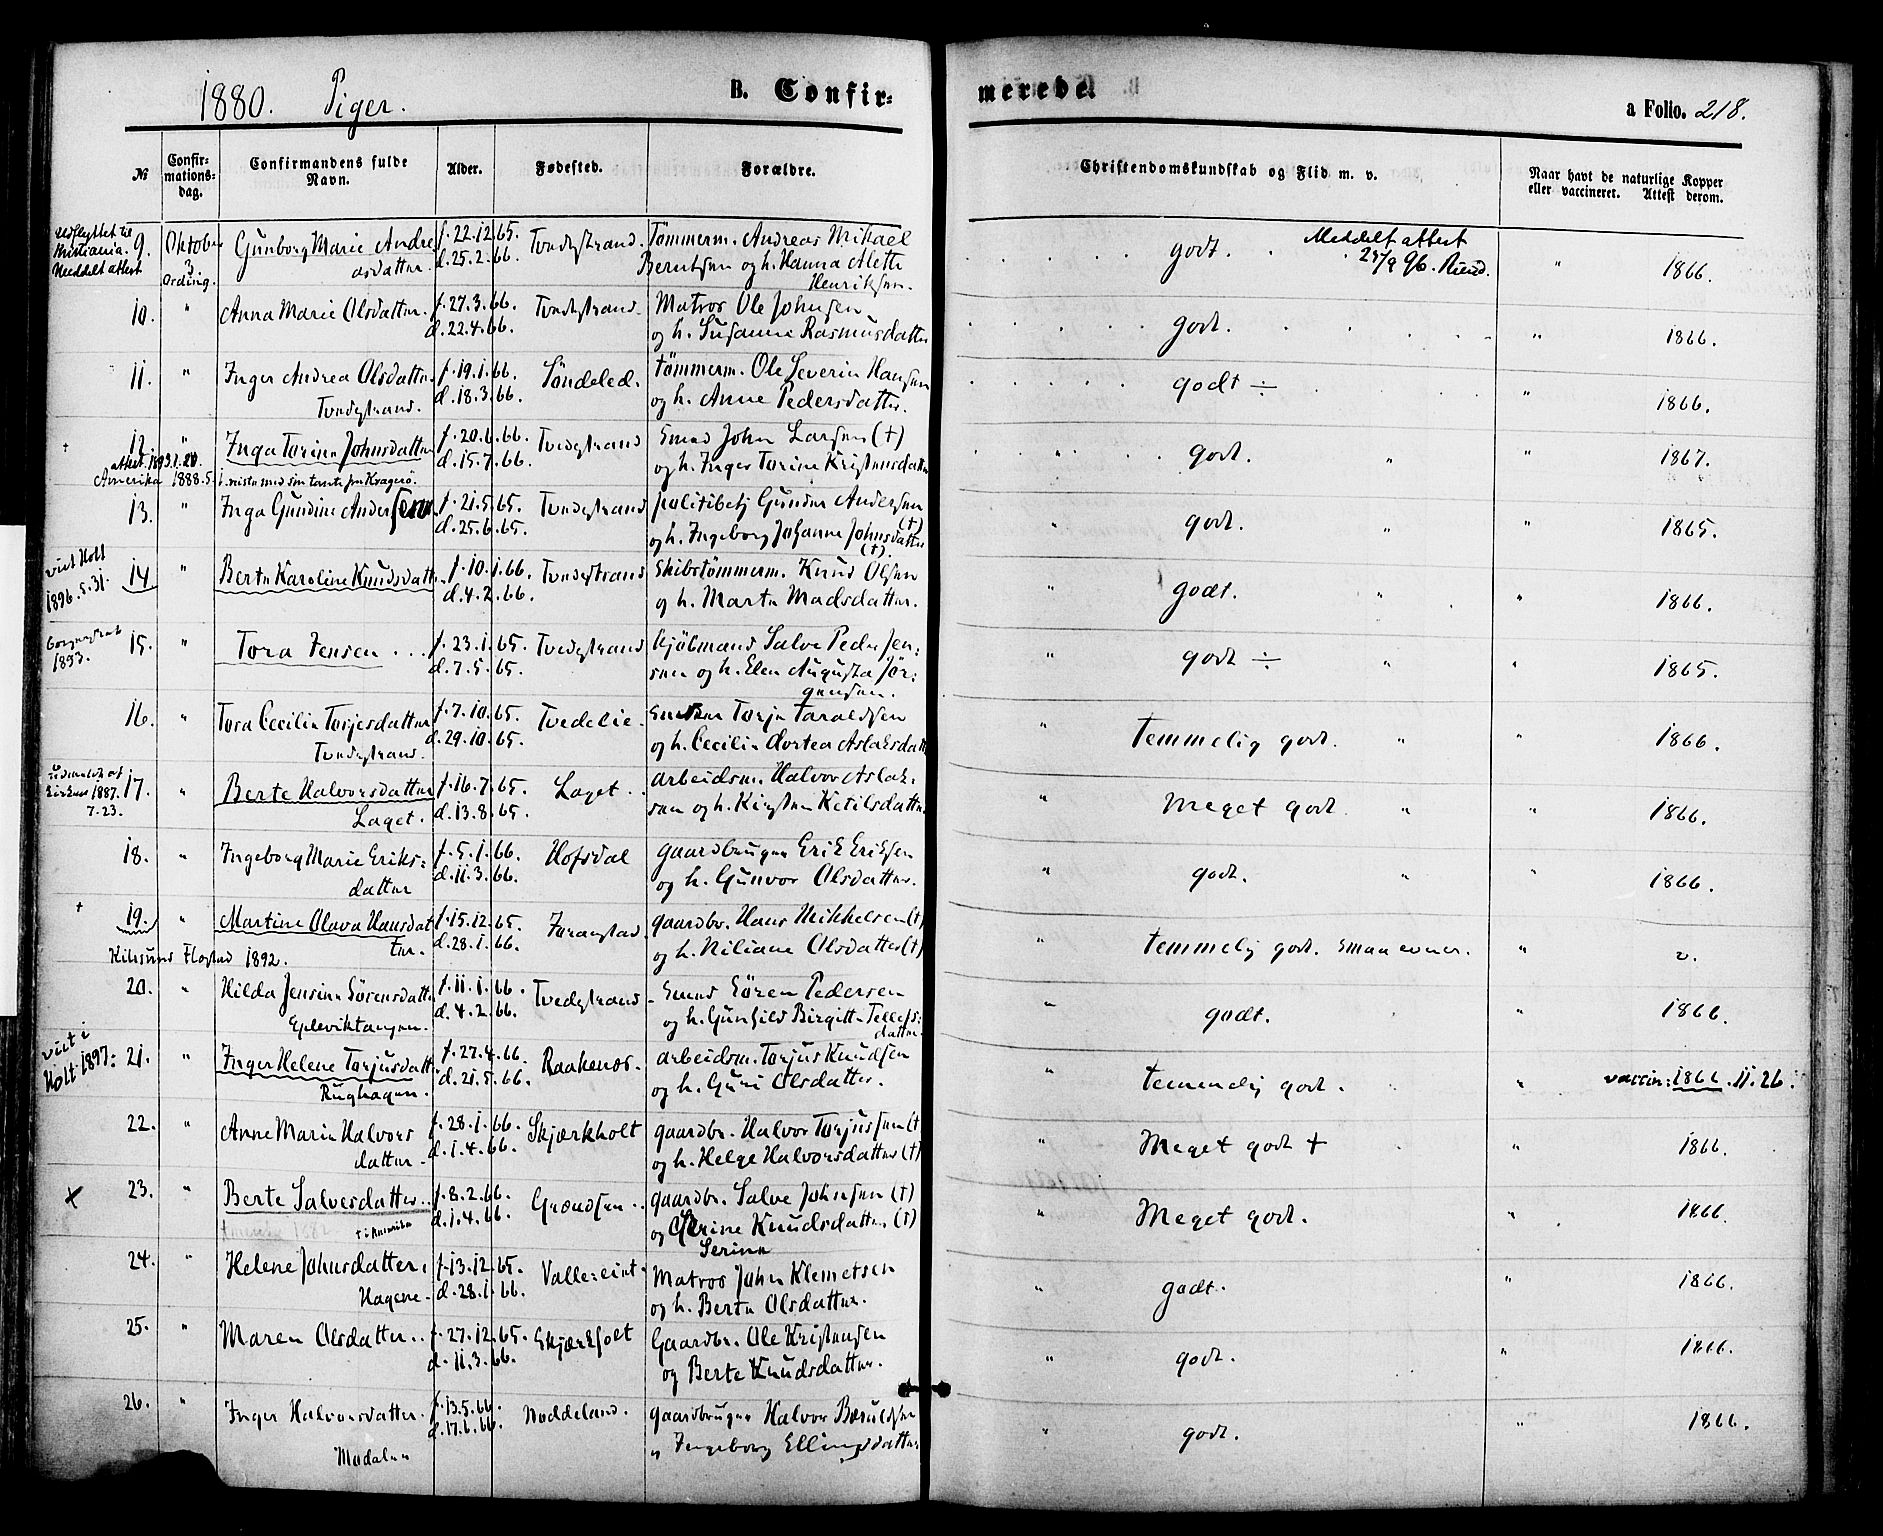 1880. Piger.
B. Confir-
merede.
a Folio. 218.
№
Confir-
mations-
dag.
Confirmandens fulde
Navn.
Alder.
Fødested.
Forældre.
Christendomskundskab og Flid m. v.
Naar havt de naturlige Kopper
eller vaccineret. Attest derom.
udflyttet til
Kristiania.
Meddelt attest
9. Oktober 3 Søndag.
Gunborg Marie Andre
asdatter.
f. 22.12.65.
d. 25.2.66.
Tvedestrand.
Tømmerm. Andreas Mikael
Berntsen og h. Hanna Aleth
Henriksen.
godt.
Meddelt attest
1866.
10. " Anna Marie Olsdatter.
f. 27.3.66.
d. 22.4.66.
Tvedestrand.
Matros Ole Johnsen
og h. Susanne Rasmusdatter
godt. " 1866.
11. " Inger Andrea Olsdatter
Tvedestrand.
f. 19.1.66.
d. 18.3.66.
Søndeled.
tømmerm. Ole Severin Hansen
og h. Anne Pedersdatter.
godt ÷ " 1866.
† 12. " Inga Torine Johnsdatter
f. 20.6.66.
d. 15.7.66.
Tvedestrand
Smed John Larsen (†)
og h. Inger Torine Kristensdatter
godt. " " 1867.
Amerika 1888.5.
13. " Inga Gundine Andersen.
f. 21.5.65.
d. 25.6.65.
Tvedestrand
politibetj Gunder Andersen
(†)
og h. Ingeborg Johanne Johnsdatter
(†).
" godt. " " 1865.
viet Holt
1896.5.31.
14 " Berte Karoline Knudsdatter
f. 10.1.66.
d. 4.2.66.
Tvedestrand
Skibstømmerm. Knud Olsen
og h. Marte Madsdatter.
" godt. " " 1866.
1893.
15. " Tora Jensen ...
f. 23.1.65.
d. 7.5.65.
Tvedestrand
Kjøbmand Salve Peder Jen-
sen og h. Elen Augusta Jør-
gensen.
" godt ÷ " " 1865.
16. " Tora Cecilie Torjesdatter
Tvedestrand.
f. 7.10.65.
d. 29.10.65.
Tvedelie.
Torje Taraldsen
og h. Cecilie Dortea Aslaksdatt
" temmelig godt. " " 1866.
1887.
7.23.
17. " Berte Halvorsdatter
Laget.
f. 16.7.65.
d. 13.8.65.
Laget.
arbeidsm. Halvor Aslak-
sen og h. Kirsten Ketilsdatter
" Meget godt " " 1866.
18. " Ingeborg Marie Eriks-
datter
f. 5.1.66.
d. 11.3.66.
Hofsdal
gaardbruger Erik Eriksen
og h. Gunvor Olsdatter.
" godt. " " 1866.
† 19. " Martine Olava Hansdat
ter.
f. 15.12.65.
d. 28.1.66.
gaardbr. Hans Mikkelsen (†)
og h. Niliane Olsdatter (†)
" temmelig godt. Smaa evner. " v.
Kilsund Flostad 1892.
20. " Hilda Jensine Sørensdatt
Epleviktangen.
f. 11.1.66.
d. 4.2.66.
Tvedestrand
Smed Søren Pedersen
og h. Gunhild Birgitte Tellefs-
datter.
" godt. " 1866.
viet i
Holt 1897:
21. " Inger Helene Torjusdatt
Rughagen.
f. 27.4.66.
d. 21.5.66.
Raakenes.
arbeidsm. Torjus Knudsen
og h. Guri Olsdatter.
" temmelig godt. " vaccin: 1866.11.26.
22. " Anne Marie Halvors
datter
f. 28.1.66.
d. 1.4.66.
Skjærkholt
gaardbr. Halvor Torjussen (†
og h. Helge Halvorsdatter (†)
" Meget godt + " 1866.
23. " Berte Salvesdatter..
† i Amerika
f. 8.2.66.
d. 1.4.66.
gaardbr. Salve Johnsen (†)
og Serine Knudsdatter (†)
Serine
" Meget godt. " 1866.
24. " Helene Johnsdatter.
Hagene.
f. 13.12.65.
d. 28.1.66.
Matros John Klemetsen
og h. Berte Olsdatter.
" godt. " 1866.
25. " Maren Olsdatter..
f. 27.12.65.
d. 11.3.66.
Skjærkholt
Gaardbr. Ole Kristensen
og Berte Knudsdatter.
" godt. " 1866.
26. " Inger Halvorsdatter.
f. 13.5.66.
d. 17.6.66.
Noddeland.
gaardbruger Halvor
" Ingeborg Ellingsdatter
" godt. " 1866.